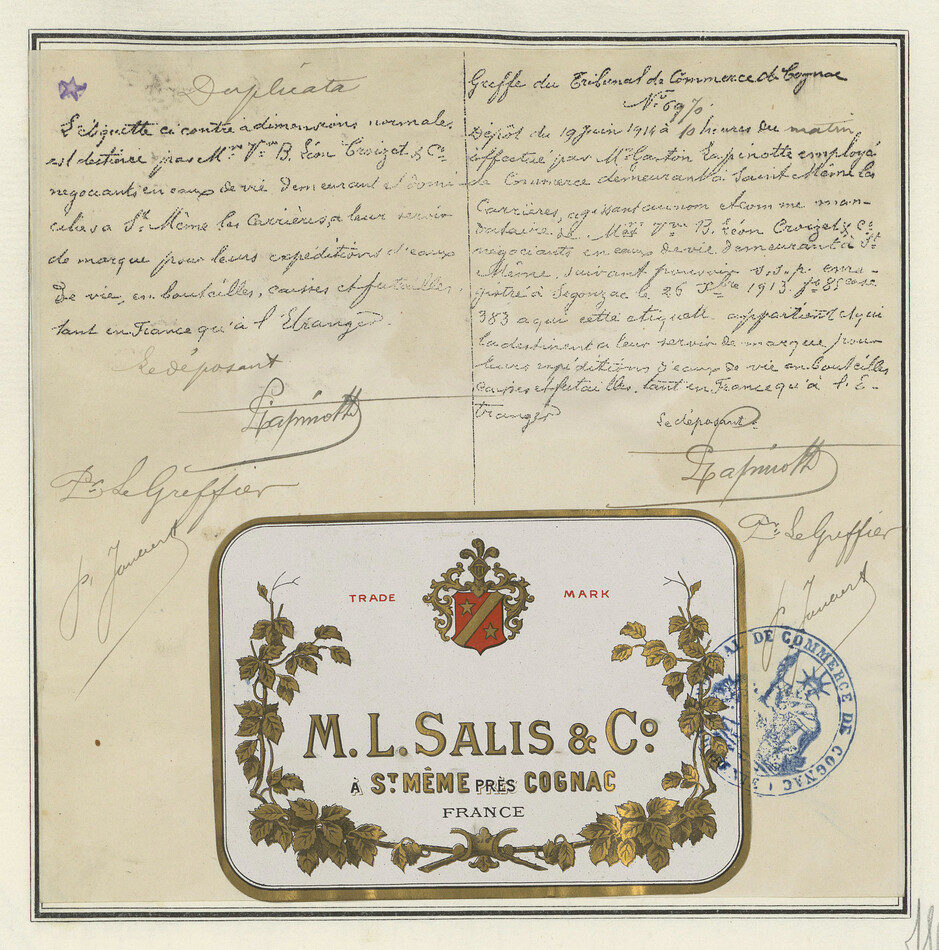 Duplicata
L'étiquette ci contre à dimensions normales
est destinée par Mrs Vve B. Léon Croizet & Co
negociants en eaux de vie demeurant et domi-
ciliés à St Même les Carrières, a leur servir
de marque pour leurs expéditions d'eaux
de vie, en bouteilles, caisses et futailles,
tant en France qu'à l'Etranger.
Le déposant
Lapinotte
Pr Le Greffier
Greffe du Tribunal de Commerce de Cognac
No 6970
Dépôt du 19 Juin 1914 à 10 heures du matin
effectué par Mr Gaston Lapinotte employé
de Commerce demeurant à Saint Même les
Carrières, agissant au nom et comme man-
dataire de Vve B. Léon Croizet & Co
négociants en eaux de vie demeurant à St
Même, suivant pouvoir s.s.p. enre-
gistré à Segonzac le 26 Xbre 1913 fo 85 case
383 a qui cette etiquette appartient et qui
la destinent a leur servir de marque pour
leurs expéditions d'eaux de vie en bouteilles
caisses et futailles, tant en France qu'à l'E-
tranger
Le déposant
Lapinotte
Pr Le Greffier
TRADE MARK
M. L. SALIS & Co
À ST MÊME PRÈS COGNAC
FRANCE
DE COMMERCE DE COGNAC